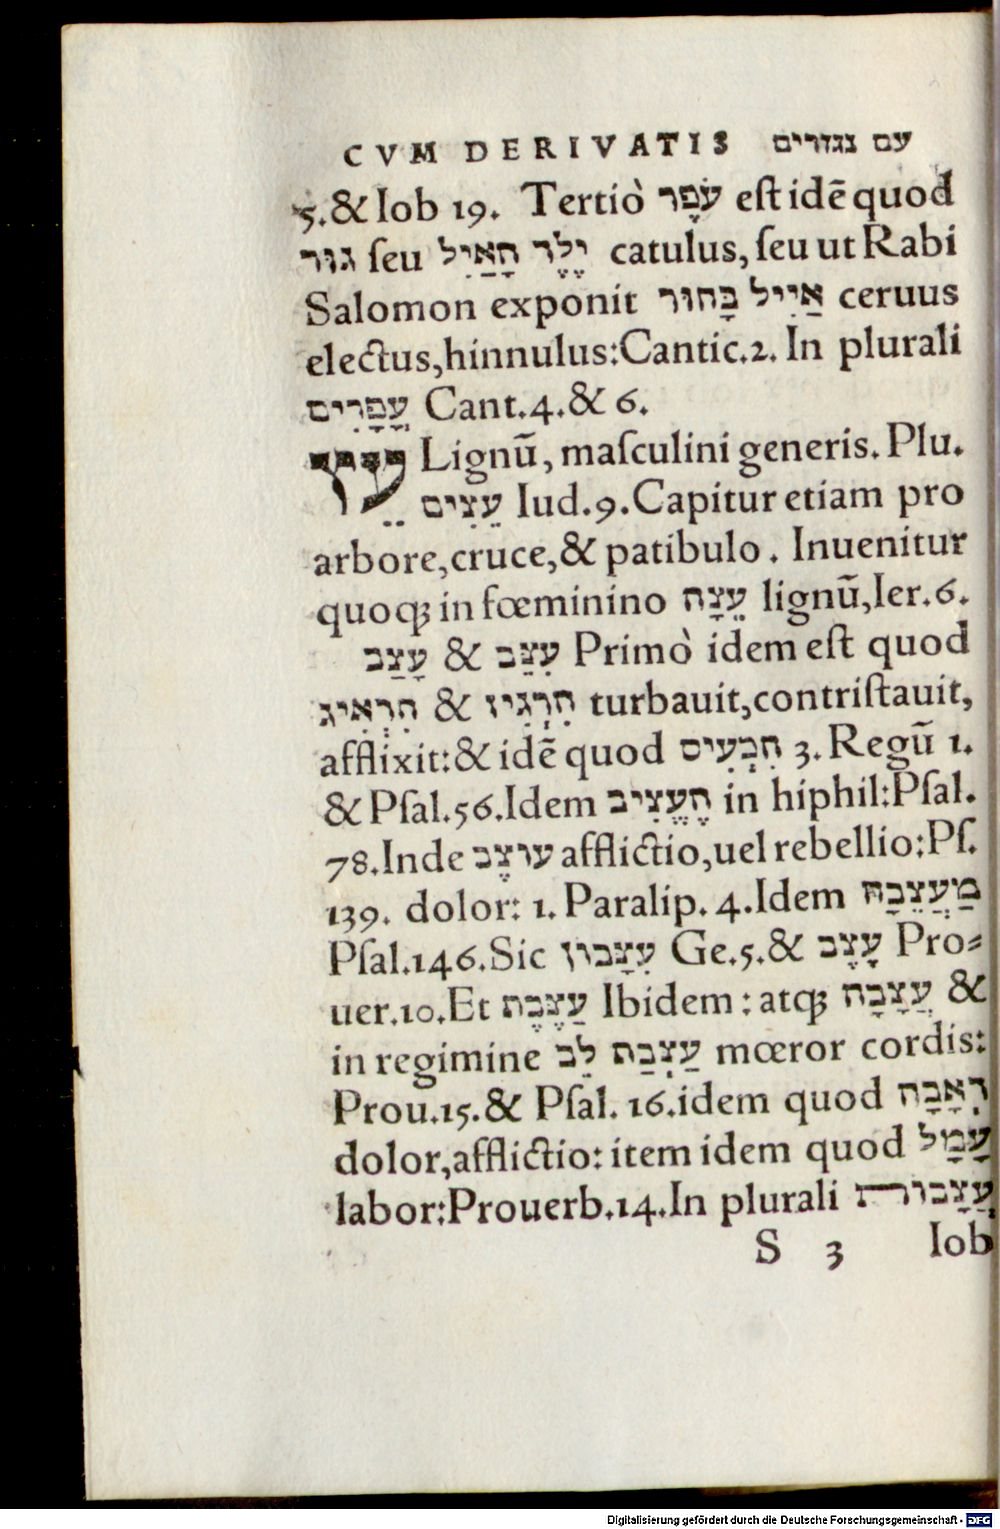 CVM DERIVATIS עם נגזרים
5.& Iob 19. Tertiò עֹפֶר eſt idē quod
גור ſeu יֶלֶד הָאַיִל catulus, ſeu ut Rabi
Salomon exponit אַיִיל בָּחור ceruus
electus,hinnulus:Cantic.2. In plurali
עֳפָרִים Cant.4.& 6.
עֵץ Lignū, maſculini generis. Plu.
עֵצִים Iud.9.Capitur etiam pro
arbore,cruce,& patibulo. Inuenitur
quoqꝫ in fœminino עֵצָה lignū,Ier.6.
עָצַב & עִצֵּב Primò idem eſt quod
הִרְאִיג & הִרְגִיז turbauit,contriſtauit,
afflixit:& idē quod הִכְעִיס 3. Regū 1.
& Pſal.56.Idem הֶעֱצִיב in hiphil:Pſal.
78.Inde עוצֶב afflictio,uel rebellio:Pſ.
139. dolor: 1. Paralip. 4.Idem מַעֲצֵבָה
Pſal.146.Sic עִצָבון Ge.5.& עָצֶב Pro⸗
uer.10.Et עַצֶבֶת Ibidem : atqꝫ עֲצָבָה &
in regimine עַצְבַת לֵב mœror cordis:
Prou.15.& Pſal. 16.idem quod דְאָבָה
dolor,afflictio: item idem quod עָמָל
labor:Prouerb.14.In plurali עֲצָבות
S 3 Iob
Digitalisierung gefördert durch die Deutsche Forschungsgemeinschaft - DFG